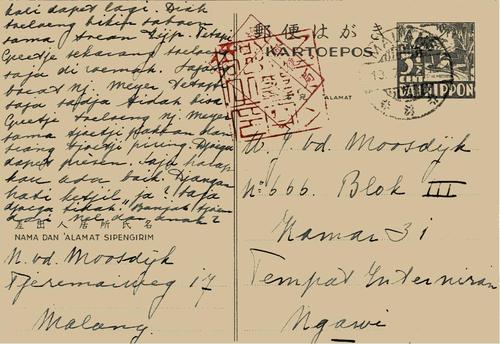 kali dapet lagi. Dick
toeloeng bikin saboen
sama Arean Djp. Tetapi
Greetje sekarang toeloeng
saja di roemah. Saja
boeat Nj. Meyer tetapi
saja sadja tidak bisa
Greetje toeloeng nj. Meyer
sama tjoetji pakean dan
tjoetji piring. Djoega
dapet presen. Saja harap
kau ada baik. Djangan
hati ketjil ja? Saja
djoega tidak. Banjak tjioem
dari Nel dan anak2
左出人居所氏名
NAMA DAN ALAMAT SIPENGIRIM
N. vd. Moosdijk
Tjeremaiweg 17
Malang.
郵便はがき
KARTOEPOS
ALAMAT
MALANG
3½
NIPPON
J. vd. Moosdijk
No: 666. Blok III
Kamar 31
Tempat Interniran
Ngawi